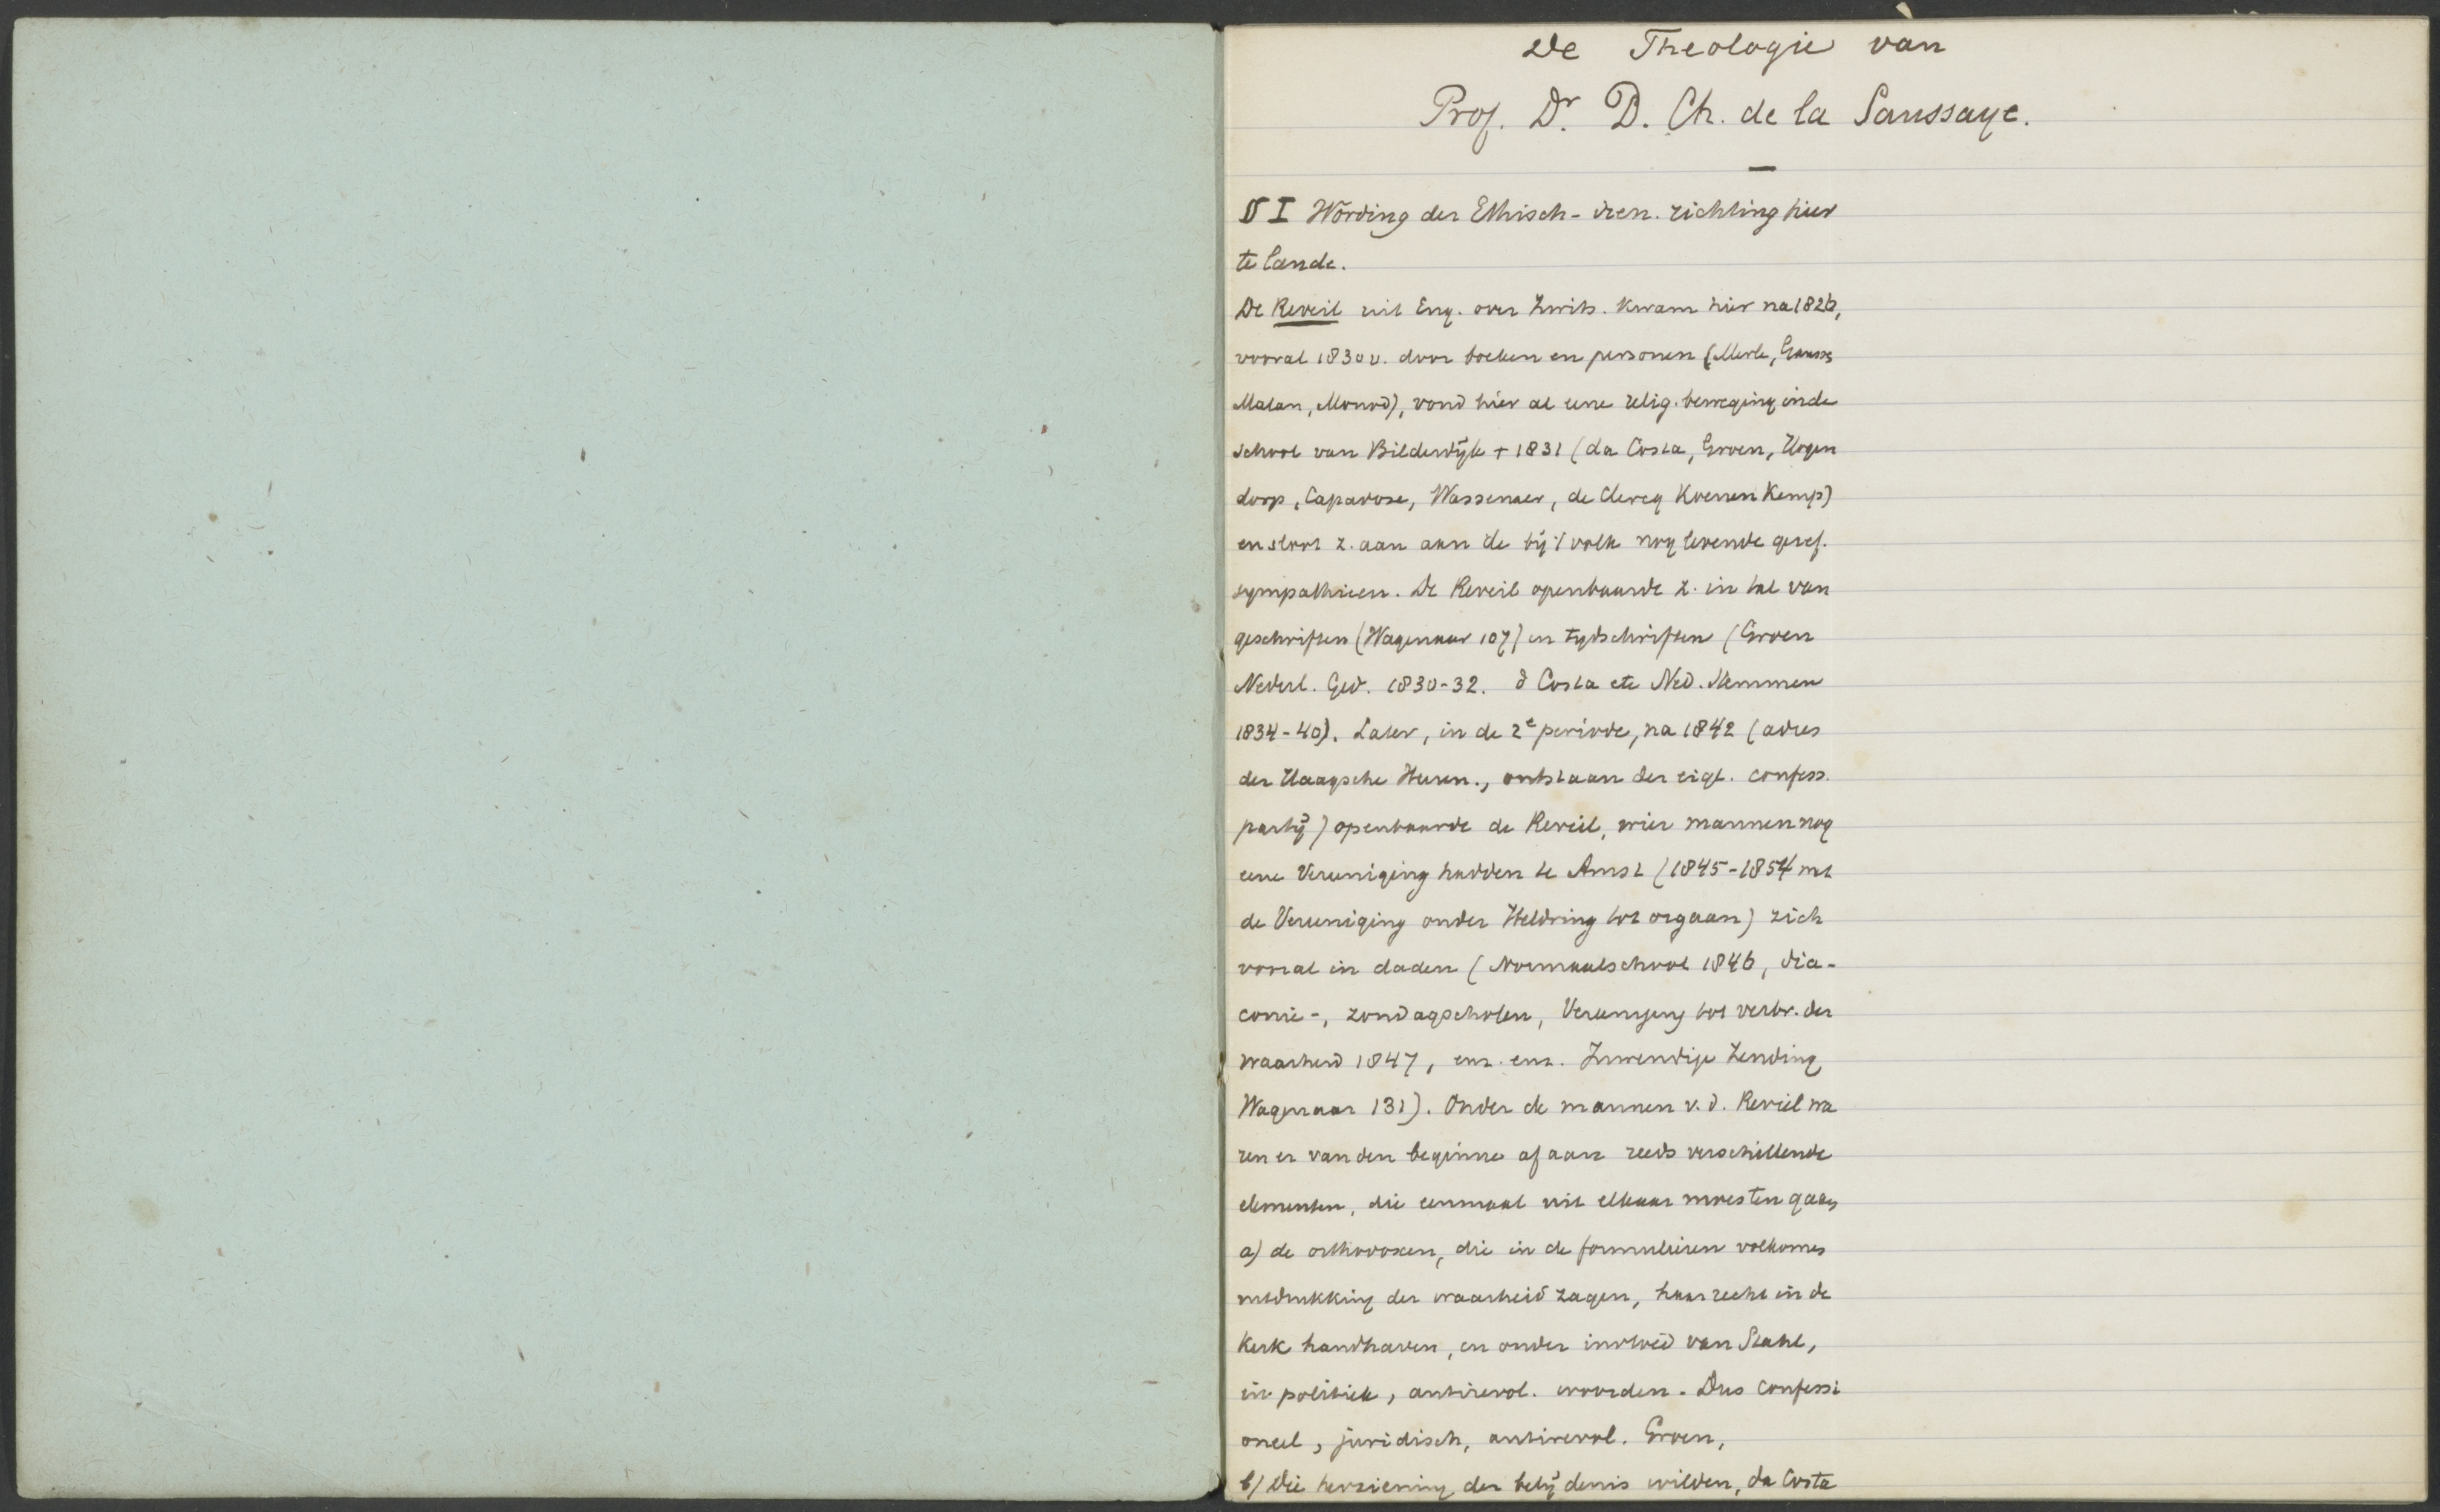 De Theologie van
Prof. Dr. D. Ch. de la Saussaye.
§ I Wording der Ethisch-iren. richting hier
te lande.
De Reveil uit Eng. over Zwits. kwam hier na 1826,
vooral 1830 v. door boeken en personen (Merle, Gauss
Malan, Monod), vond hier al eene relig. beweging in de
school van Bilderdijk + 1831 (da Costa, Groen, Hogen
dorp, Capadose, Wassenaer, de Clercq Koenen Kemp)
en sloot z. aan aan de bij 't volk nog levende geref.
sympathieen. De Reveil openbaarde z. in tal van
geschriften (Wagenaar 107) en tydschriften (Groen
Nederl. Ged. 1830-32. d Costa etc Ned. Stemmen
1834-40). Later, in de 2e periode, na 1842 (adres
der Haagsche Heeren., ontstaan der eigl. confess.
partij) openbaarde de Reveil, wier mannen nog
eene Vereeniging hadden te Amst (1845-1854 met
de Vereeniging onder Heldring tot orgaan) zich
vooral in daden (Normaalschool 1846, dia-
conie-, zondagscholen, Vereeniging tot verbr. der
waarheid 1847, enz. enz. Inwendige Zending
Wagenaar 131). Onder de mannen v. d. Reveil wa
ren er van den beginne af aan reeds verschillende
elementen, die eenmaal uit elkaar moesten gaan
a) de orthodoxen, die in de formulieren volkomen
uitdrukking der waarheid zagen, haar recht in de
Kerk handhaven, en onder invloed van Stahl,
in politiek, antirevol. worden. Dus confessi
oneel, juridisch, antirevol. Groen,
b) Die herziening der belijdenis wilden, da Costa